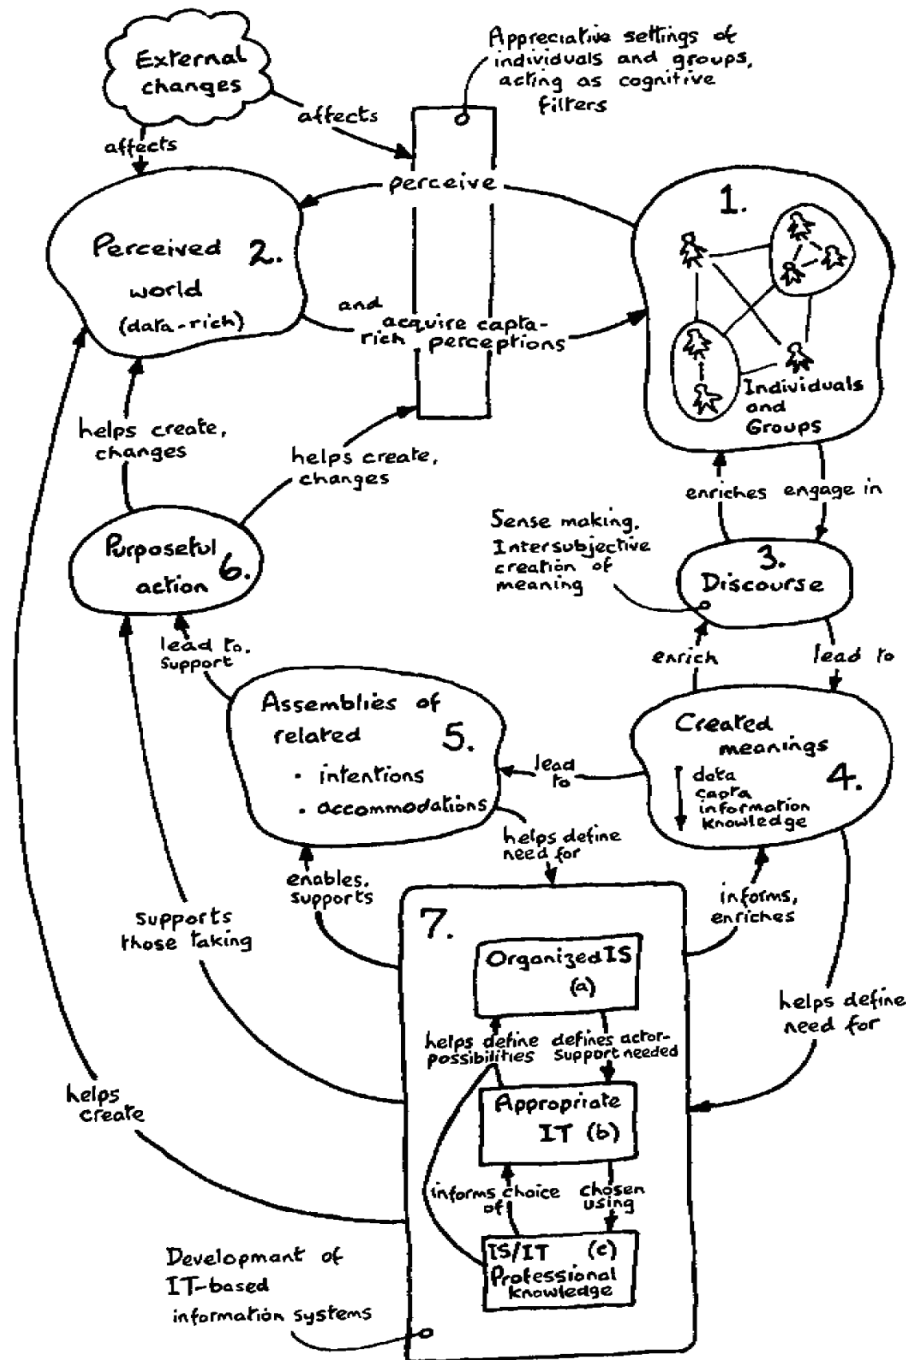 External
changes
Appreciative settings of
individuals and groups,
acting as cognitive
filters
affects
affects
perceive
1.
Perceived 2.
world
(data-rich)
and
acquire capta-
rich perceptions
Individuals
and
Groups
helps create,
changes
helps create,
changes
enriches engage in
Sense making.
Intersubjective
creation of
meaning
3.
Discourse
Purposeful
action 6.
lead to,
support
enrich
lead to
Assemblies of
related 5.
• intentions
• accommodations
lead
to
Created
meanings
4.
data
capta
information
knowledge
helps define
need for
enables,
supports
informs,
enriches
supports
those taking
7.
Organized IS
(a)
helps define
need for
helps define
possibilities
defines actor-
support needed
helps
create
Appropriate
IT (b)
informs choice
of
chosen
using
IS/IT (c)
Professional
knowledge
Development of
IT-based
information systems